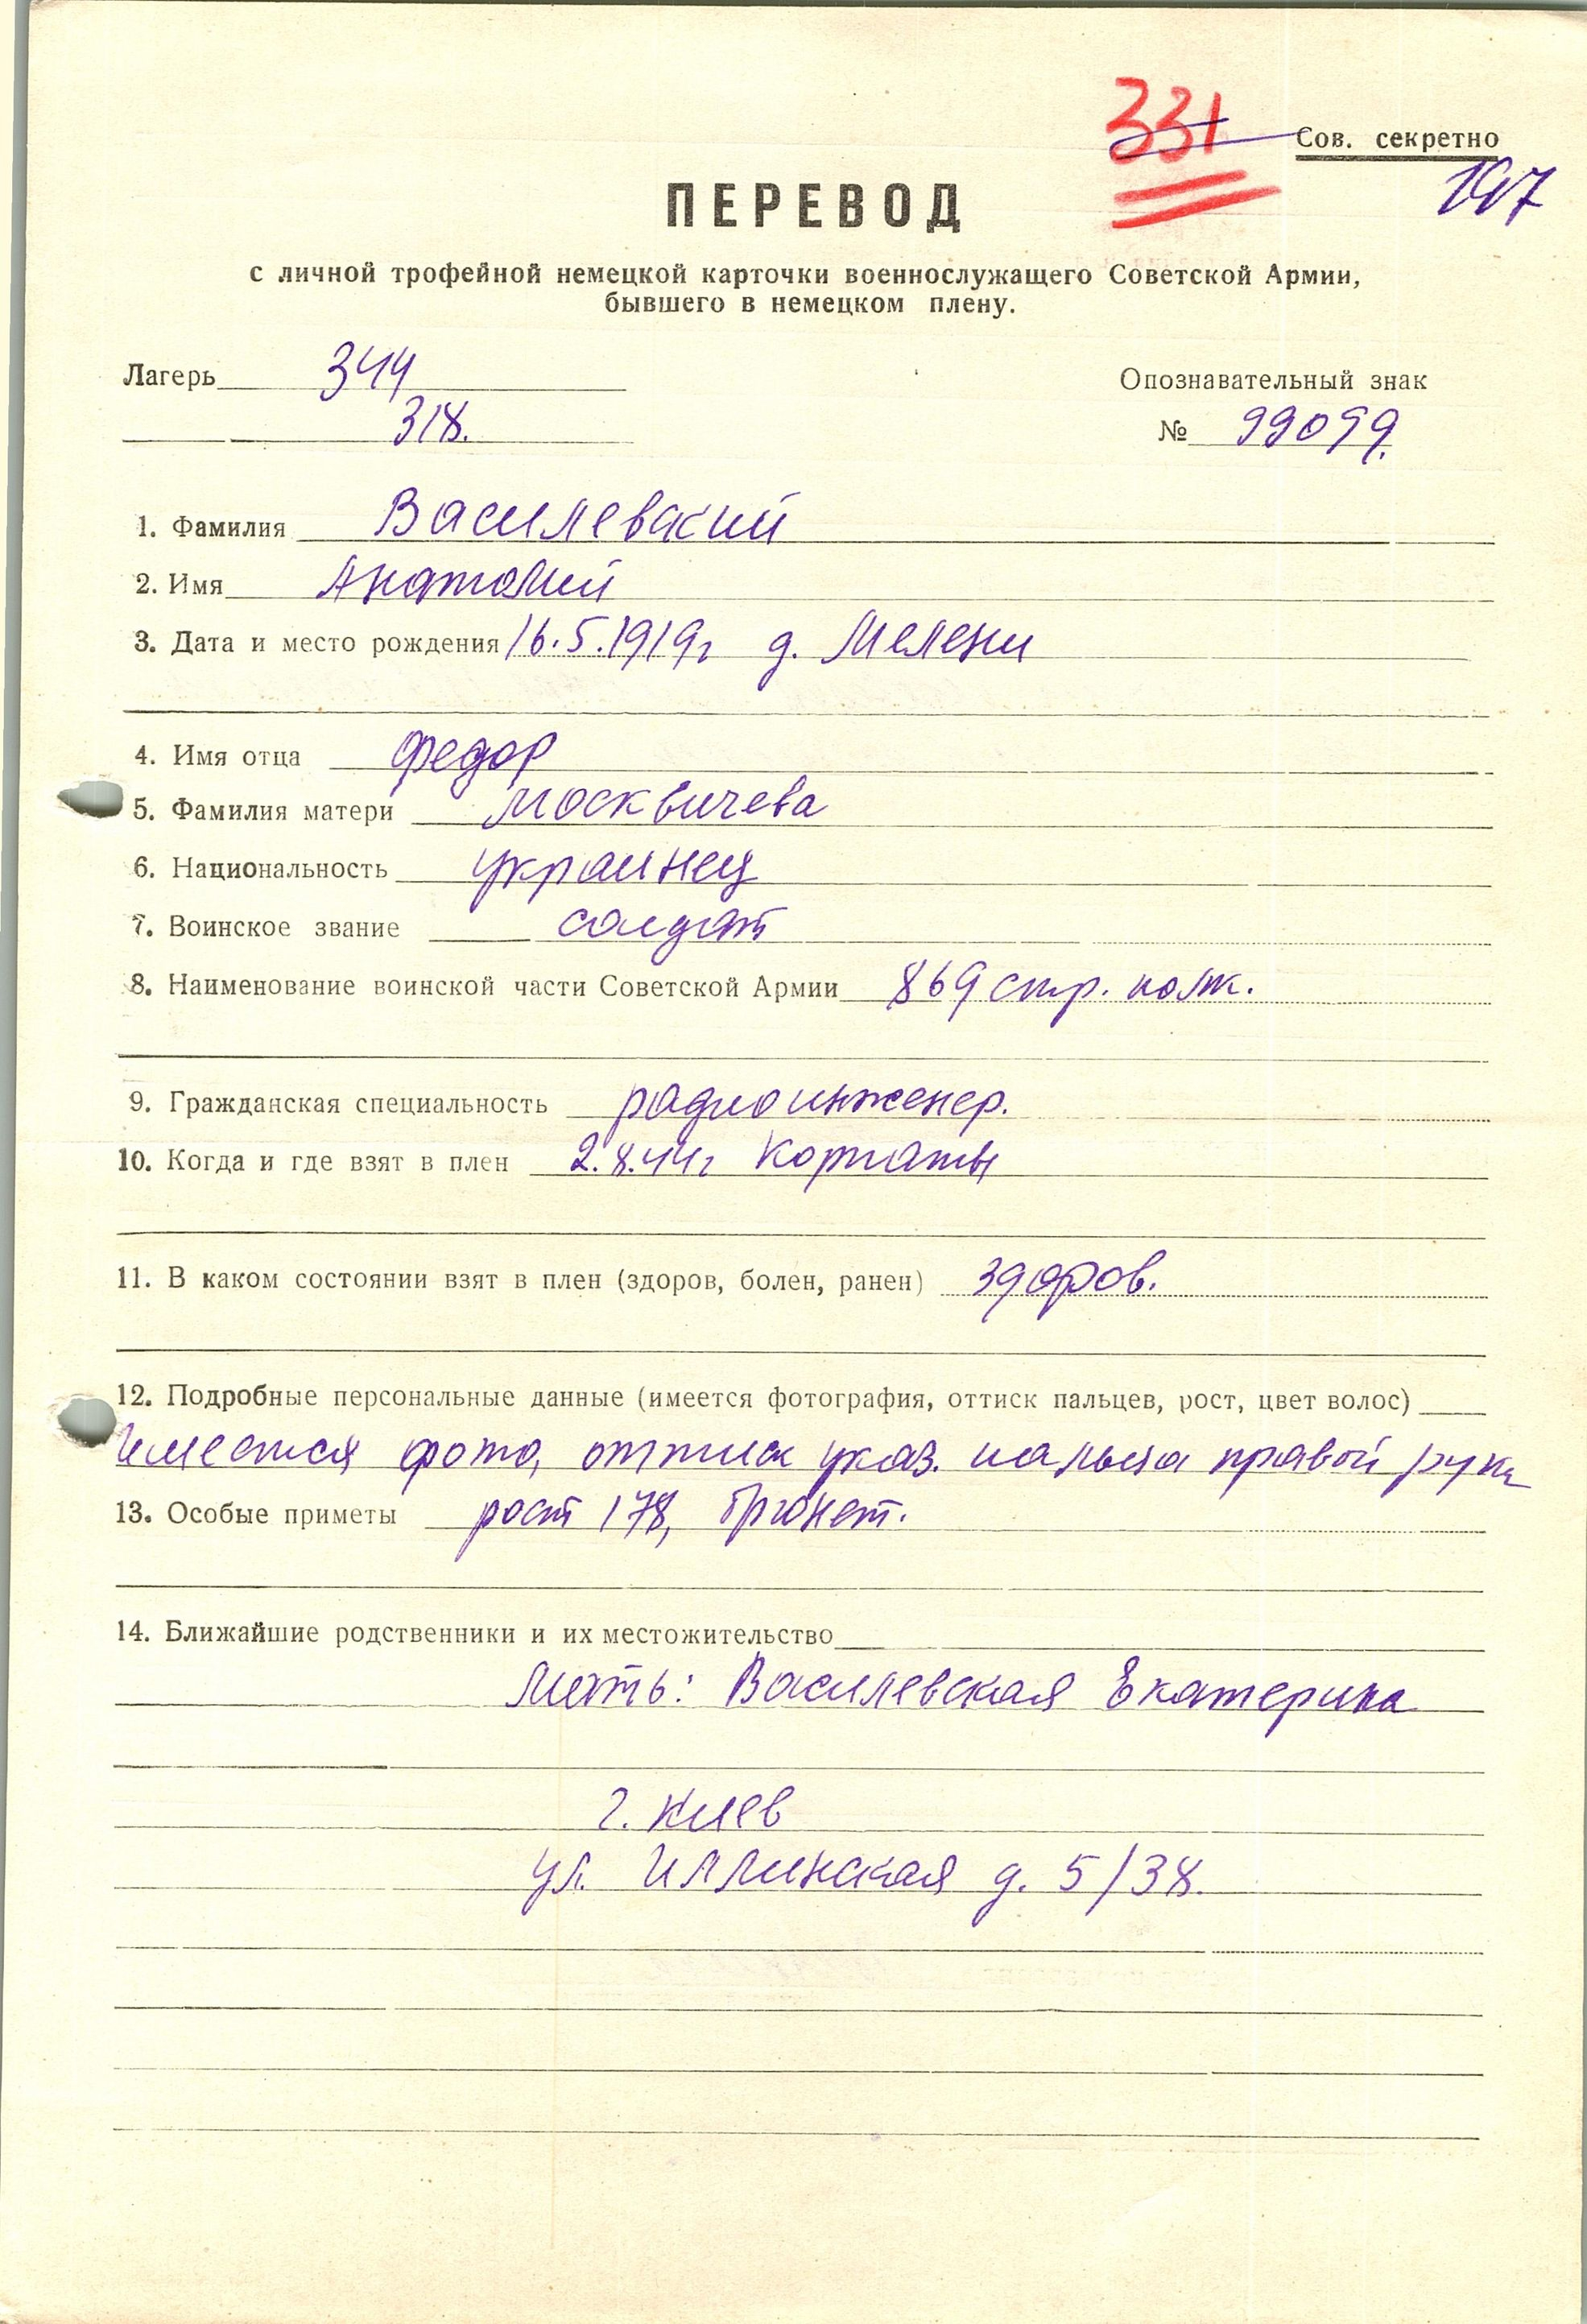 331
Сов. секретно
197
ПЕРЕВОД
с личной трофейной немецкой карточки военнослужащего Советской Армии,
бывшего в немецком плену.
Лагерь 344
Опознавательный знак
318.
№ 99099.
1. Фамилия Василевский
2. Имя Анатолий
3. Дата и место рождения 16.5.1919г д. Мелени
4. Имя отца Федор
5. Фамилия матери Москвичева
6. Национальность украинец
7. Воинское звание солдат
8. Наименование воинской части Советской Армии 869 стр. полк.
9. Гражданская специальность радиоинженер.
10. Когда и где взят в плен 2.8.44г Карпаты
11. В каком состоянии взят в плен (здоров, болен, ранен) здоров.
12. Подробные персональные данные (имеется фотография, оттиск пальцев, рост, цвет волос)
Имеется фото, оттиск указ. пальца правой руки
13. Особые приметы рост 178, брюнет.
14. Ближайшие родственники и их местожительство
Мать: Василевская Екатерина
г. Киев
ул. Иллинская д. 5/38.